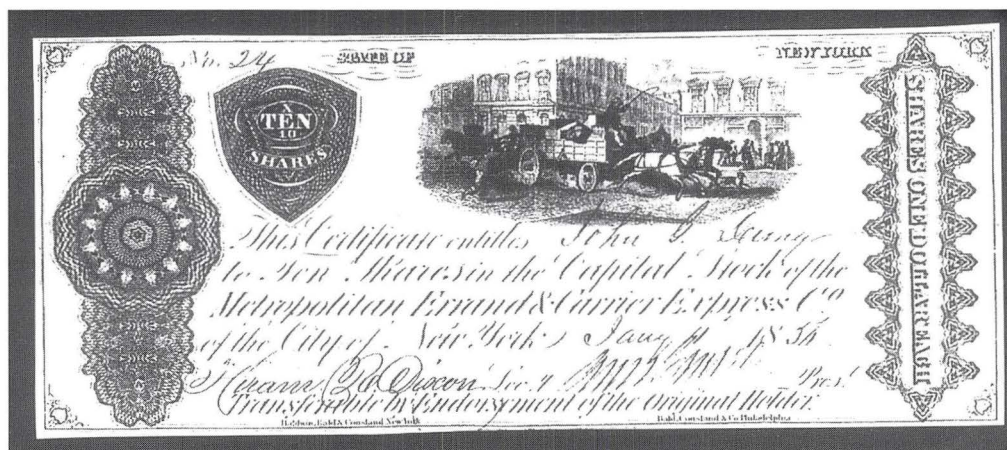 No. 24 STATE OF NEW YORK
X
TEN
10
SHARES
This Certificate entitles John G.
to Ten Shares in the Capital Stock of the
Metropolitan Errand & Carrier Express Co
of the City of New York, Jany 185
Hiram Dixon Sec.y Pres.t
Transferable by Endorsement of the Original Holder.
Baldwin, Bald & Cousland New York Bald, Cousland & Co Philadelphia
SHARES ONE DOLLAR EACH